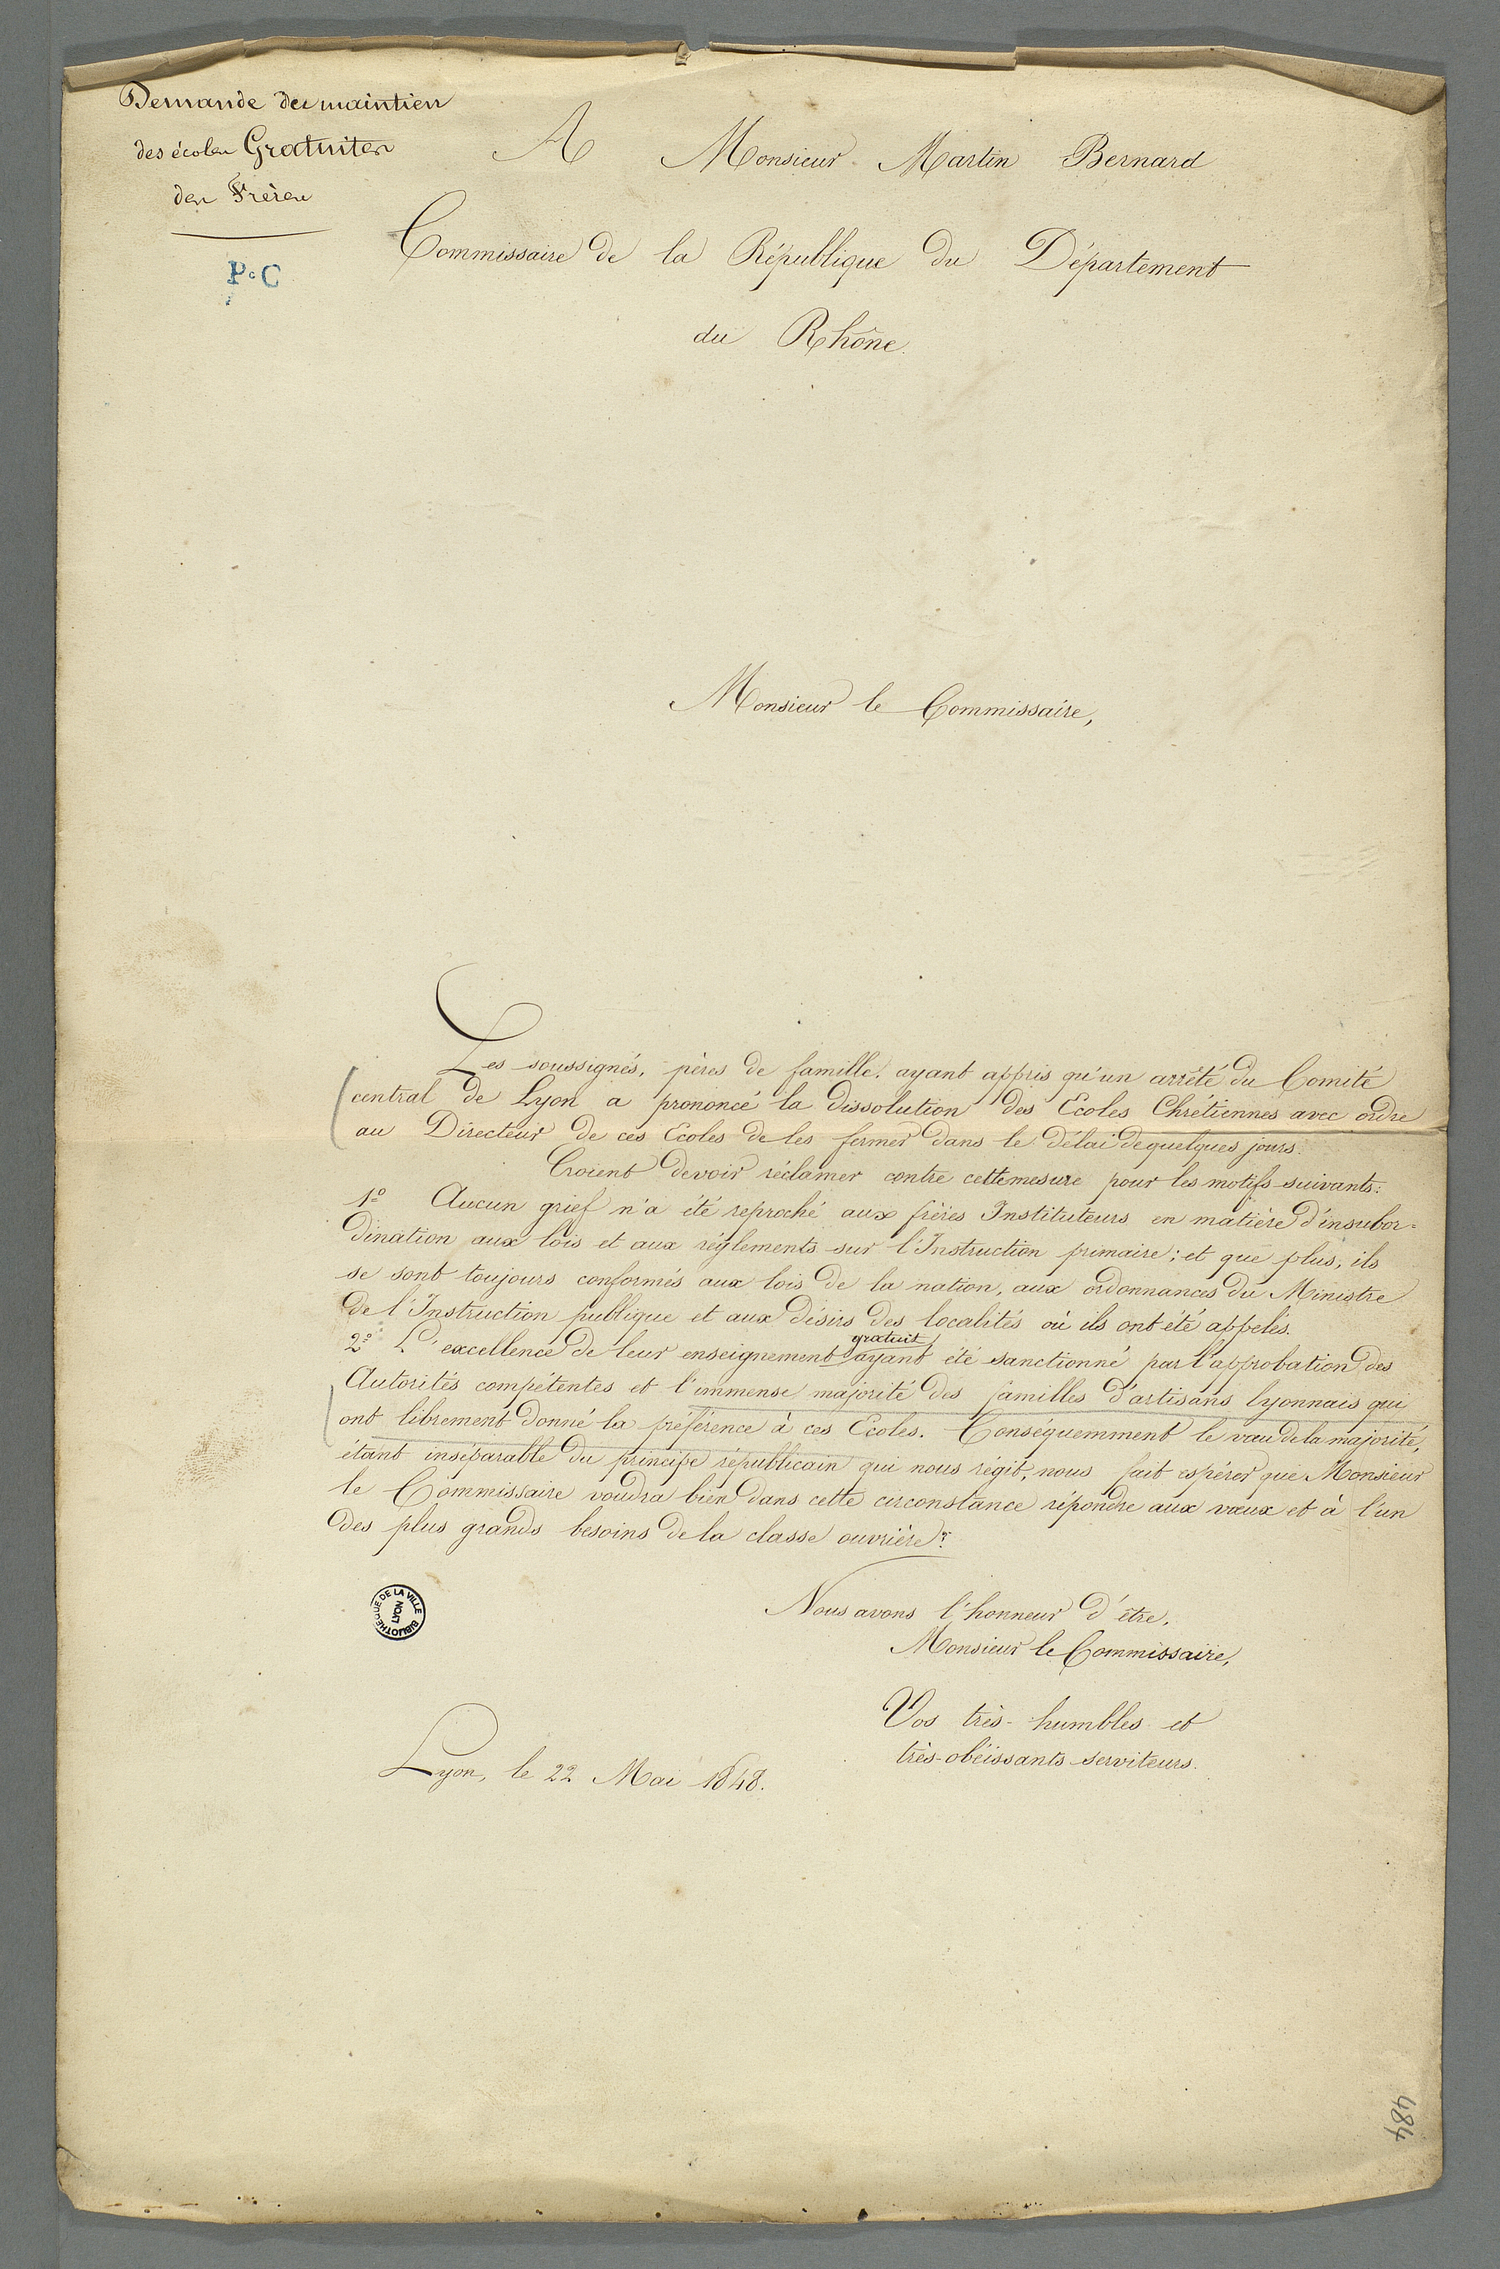 Demande du maintien
des écoles Gratuites
des Frères
P.C
A Monsieur Martin Bernard
Commissaire de la République du Département
du Rhône.
Monsieur le Commissaire,
Les soussignés, pères de famille, ayant appris qu'un arrêté du Comité
central de Lyon a prononcé la dissolution des Ecoles Chrétiennes avec ordre
au Directeur de ces Ecoles de les fermer dans le délai de quelques jours.
Croient devoir réclamer contre cette mesure pour les motifs suivants:
1º Aucun grief n'a été reproché aux frères Instituteurs en matière d'insubor=
dination aux lois et aux réglements sur l'Instruction primaire; et que plus, ils
se sont toujours conformés aux lois de la nation, aux ordonnances du Ministre
de l'Instruction publique et aux désirs des localités où ils ont été appelés.
2º L'excellence de leur enseignement gratuit ayant été sanctionné par l'approbation des
Autorités compétentes et l'immense majorité des familles d'artisans lyonnais qui
ont librement donné la préférence à ces Ecoles. Conséquemment le vœu de la majorité,
étant inséparable du principe républicain qui nous régit, nous fait espérer que Monsieur
le Commissaire voudra bien dans cette circonstance répondre aux vœux et à l'un
des plus grands besoins de la classe ouvrière.
Nous avons l'honneur d'être,
Monsieur le Commissaire,
Vos très-humbles et
très-obéissants serviteurs.
Lyon, le 22 Mai 1848.
BIBLIOTHEQUE DE LA VILLE
LYON
484